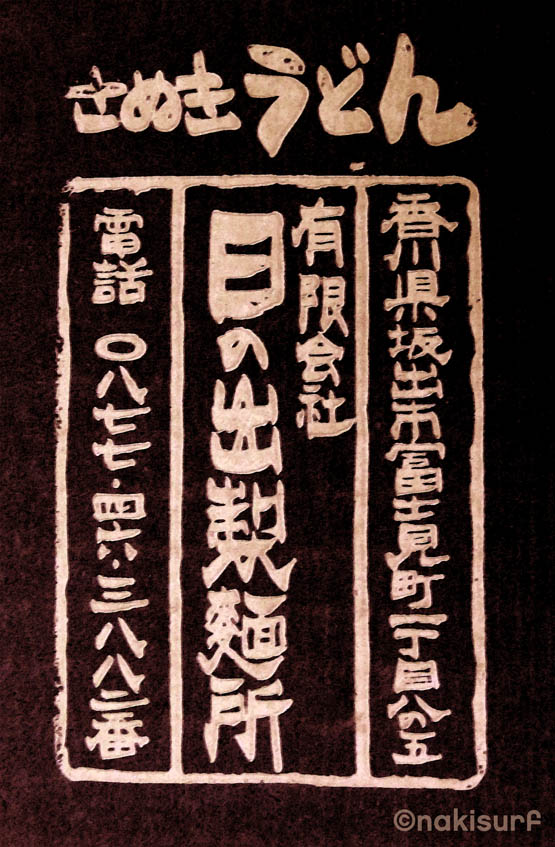 さぬきうどん
香川県坂出市富士見町一丁目八の五
有限会社
日の出製麺所
電話 〇八七七・四六・三八八二番
©nakisurf